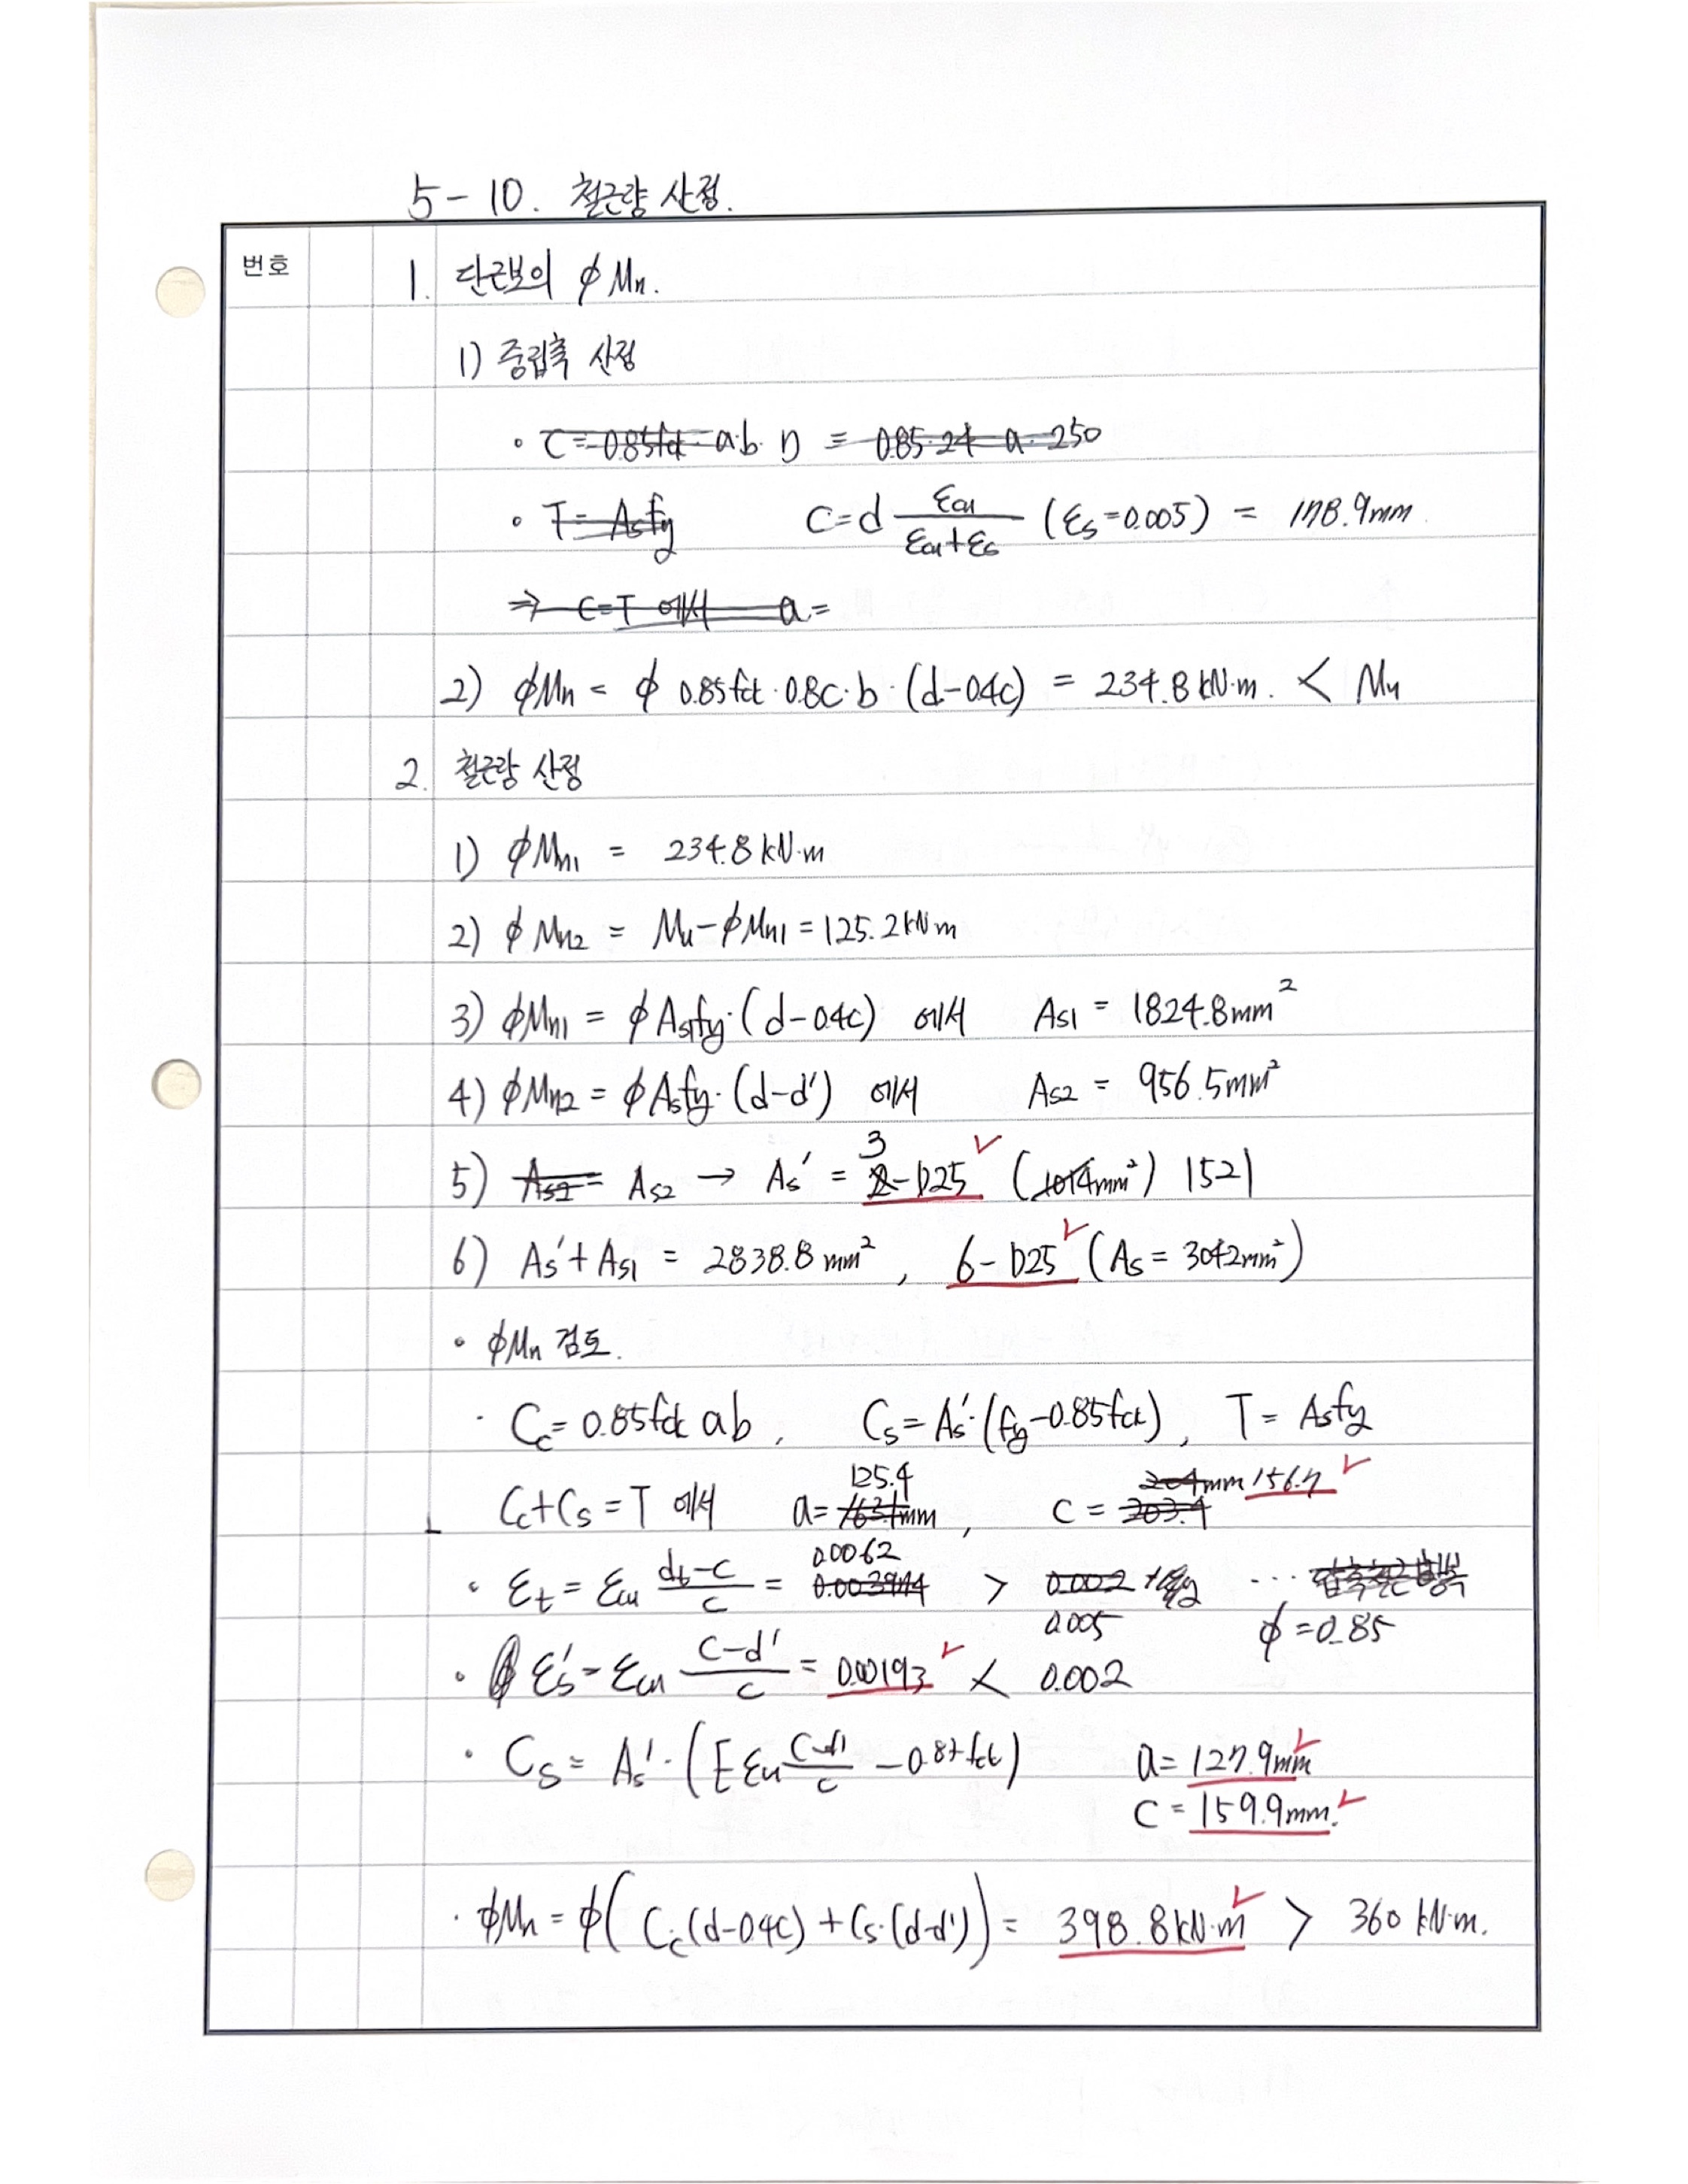 5-10. 철근량 산정.
번호
1. 단근보의 φMn.
1) 중립축 산정
• C=0.85fck a·b· η = 0.85·24·a·250
• T=Asfy C=d εcu/(εcu+εs) (εs=0.005) = 178.9mm
⇒ C=T 에서 a=
2) φMn = φ 0.85fck·0.8c·b·(d-0.4c) = 234.8 kN·m. < Mu
2. 철근량 산정
1) φMn1 = 234.8 kN·m
2) φMn2 = Mu-φMn1 = 125.2kN·m
3) φMn1 = φAs1fy·(d-0.4c) 에서 As1 = 1824.8mm²
4) φMn2 = φAsfy·(d-d') 에서 As2 = 956.5mm²
5) As2= As2 → As' = 3 2-D25 (1014mm²) 1521
6) As'+As1 = 2838.8 mm², 6-D25 (As = 3042mm²)
• φMn 검토.
· Cc=0.85fck ab, Cs=As'·(fy-0.85fck), T= Asfy
Cc+Cs=T 에서 a= 125.4 163.1mm, c = 204mm 156.7 203.9
• εt = εcu (dt-c)/c = 0.0062 > 0.002 0.005 ... 압축철근항복 φ=0.85
• εs'= εcu (c-d')/c = 0.00193 < 0.002
• Cs= As'·(Eεcu (c-d')/c -0.85fck) a= 127.9mm
c = 159.9mm.
· φMn = φ(Cc(d-0.4c)+Cs·(d-d')) = 398.8kN·m > 360 kN·m.